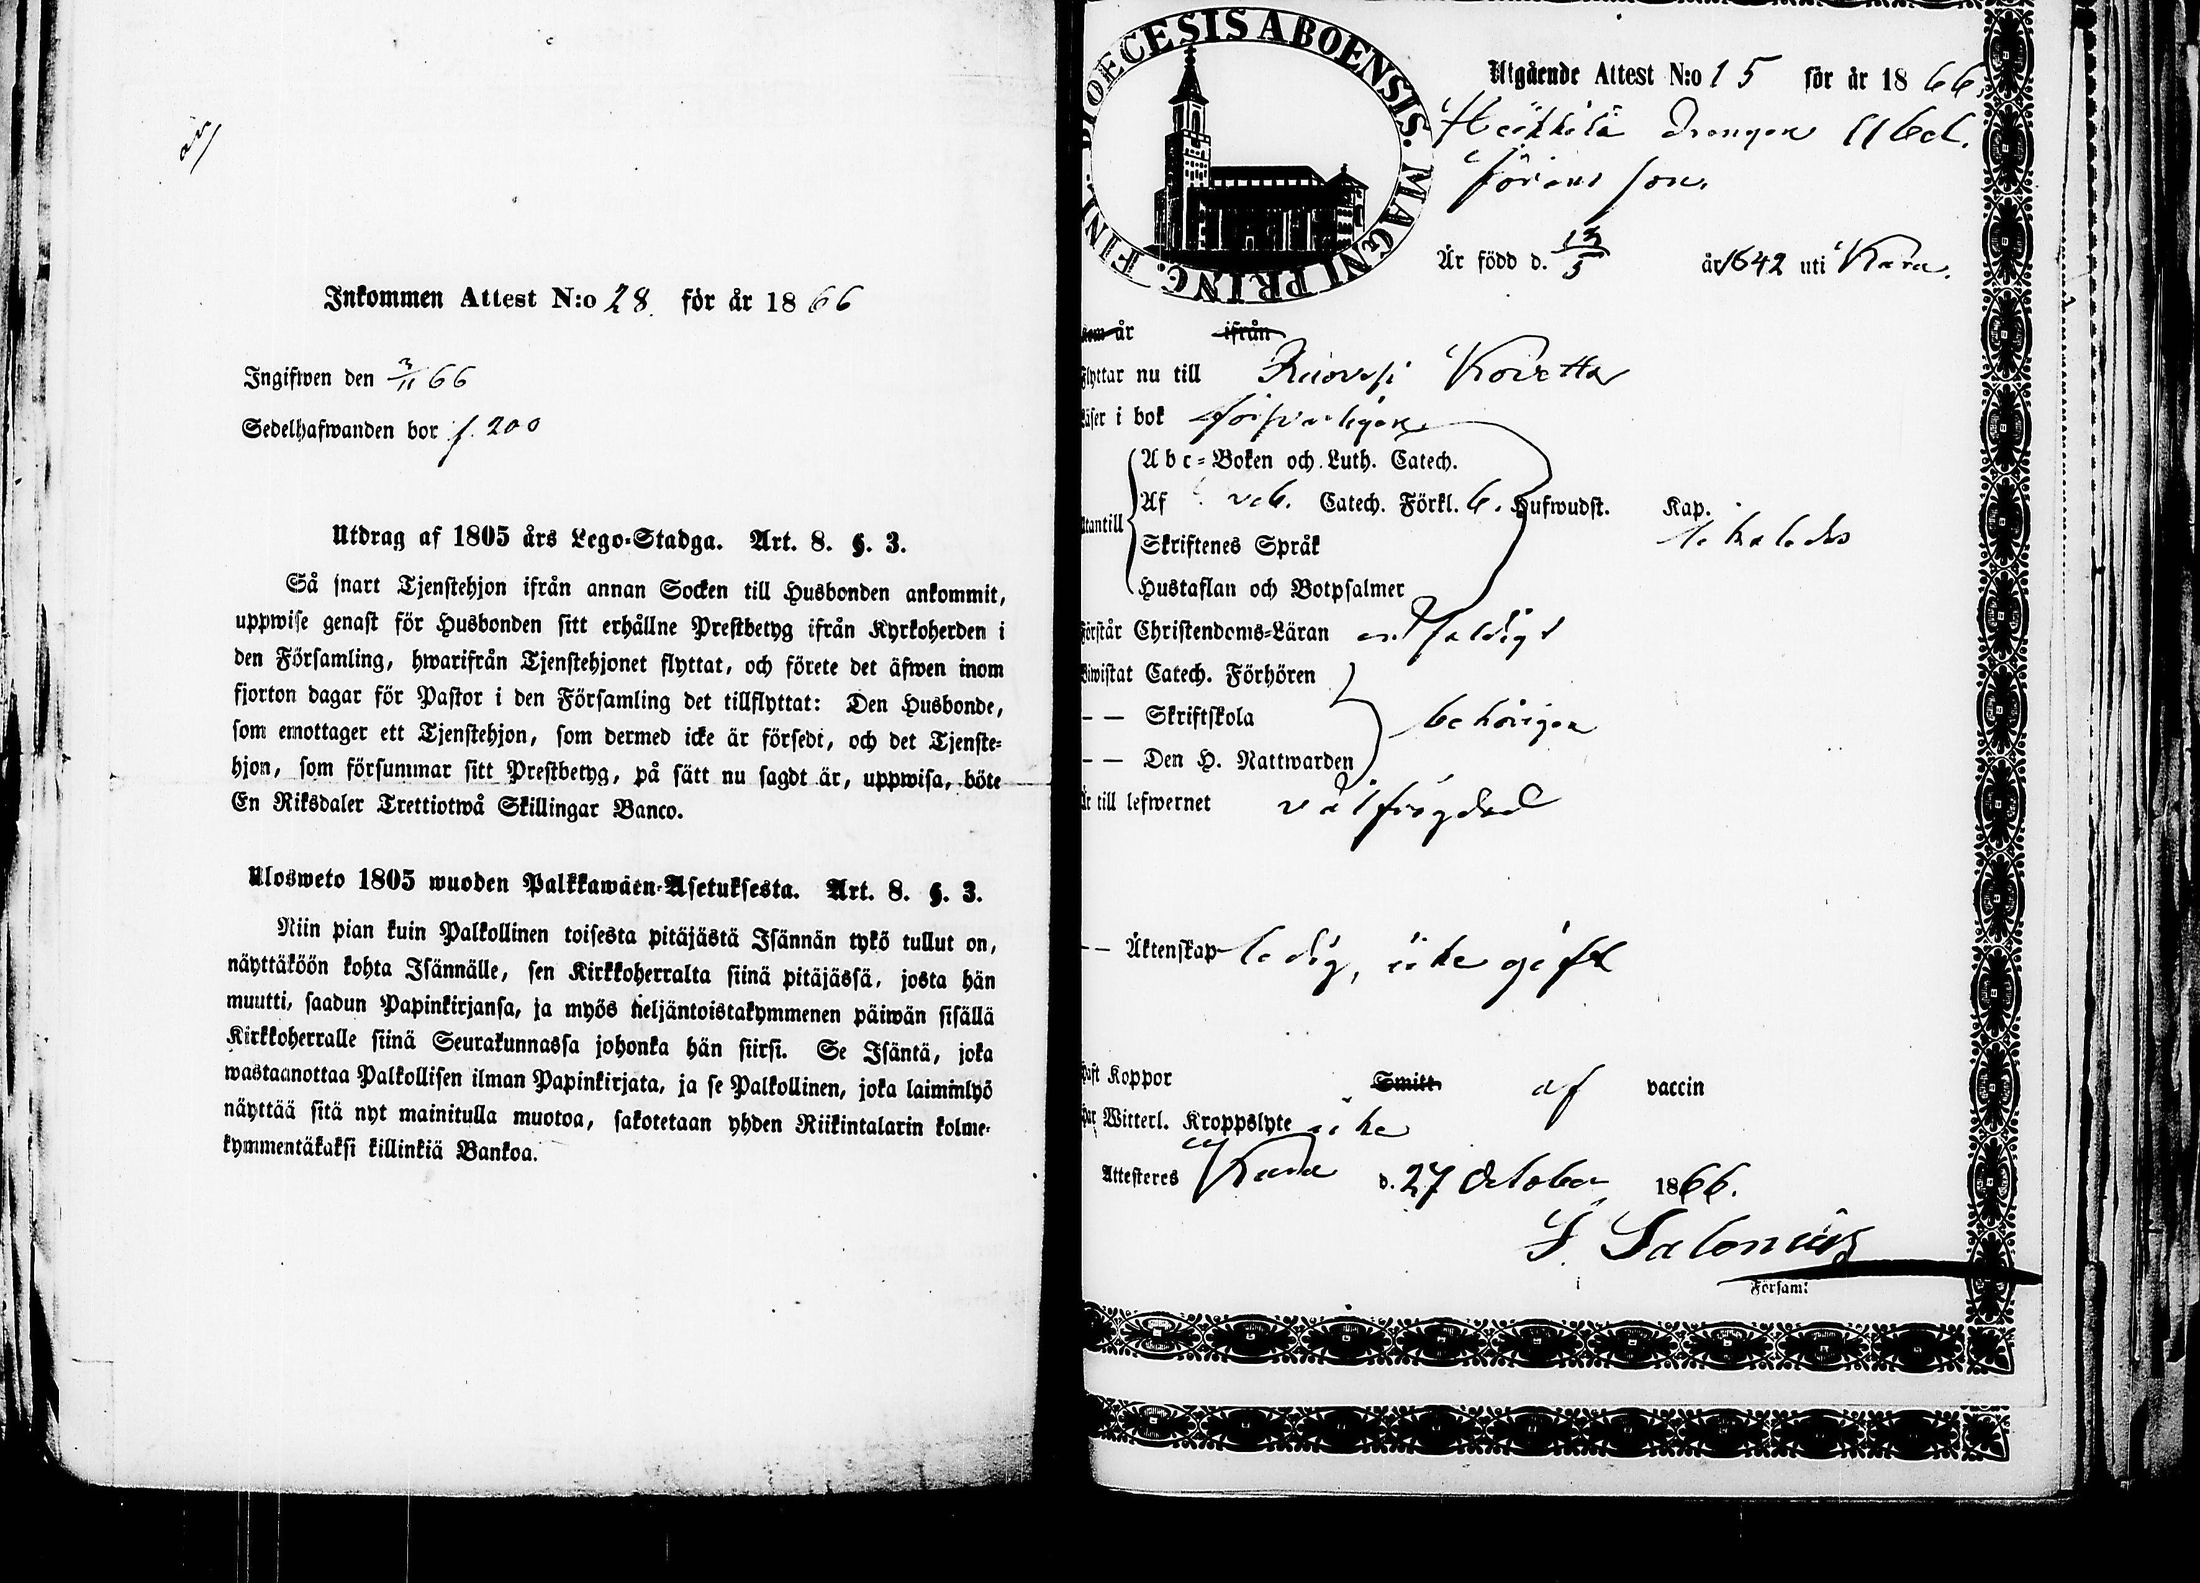 Inkommen Attest N:o 28. för år 1866
Ingifwen den 3/11 66
Sedelhafwanden bor f. 200
Utdrag af 1805 års Lego-Stadga. Art. 8. §. 3.
Så snart Tjenstehjon ifrån annan Socken till Husbonden ankommit,
uppwise genast för Husbonden sitt erhållne Prestbetyg ifrån Kyrkoherden i
den Församling, hwarifrån Tjenstehjonet flyttat, och förete det äfwen inom
fjorton dagar för Pastor i den Församling det tillflyttat: Den Husbonde,
som emottager ett Tjenstehjon, som dermed icke är försedt, och det Tjenste-
hjon, som försummar sitt Prestbetyg, på sätt nu sagdt är, uppwisa, böte
En Riksdaler Trettiotwå Skillingar Banco.
Ulosweto 1805 wuoden Palkkawäen-Asetuksesta. Art. 8. §. 3.
Niin pian kuin Palkollinen toisesta pitäjästä Isännän tykö tullut on,
näyttäköön kohta Isännälle, sen Kirkkoherralta siinä pitäjässä, josta hän
muutti, saadun Papinkirjansa, ja myös neljäntoistakymmenen päiwän sisällä
Kirkkoherralle siinä Seurakunnassa johonka hän siirsi. Se Isäntä, joka
wastaanottaa Palkollisen ilman Papinkirjata, ja se Palkollinen, joka laiminlyö
näyttää sitä nyt mainitulla muotoa, sakotetaan yhden Riikintalarin kolme-
kymmentäkaksi killinkiä Bankoa.
DIOECESIS ABOENSIS. MAGNI PRINC. FINL.
Utgående Attest N:o 15 för år 1866.
Heikkilä Drengen Abel
Johans son.
Är född d. 13/5 år 1842 uti Karu.
Kom år ifrån
Flyttar nu till Ruovesi
Läser i bok försvarligen
Abc-Boken och Luth. Catech.
Af Catech. Förkl. 6. Hufwudst. Kap.
Utantill
Skriftenes Språk
Hustaflan och Botpsalmer
Förstår Christendoms-Läran enfaldigt
Biwistat Catech. Förhören
– – Skriftskola behörigen
– – Den H. Nattwarden
Är till lefwernet välfrägdad
– – Äktenskap ledig, icke gift
Haft Koppor Smitt af vaccin
Har Witterl. Kroppslyte icke
Attesteres Karu d. 27 October 1866.
S. Salonius
Försam: